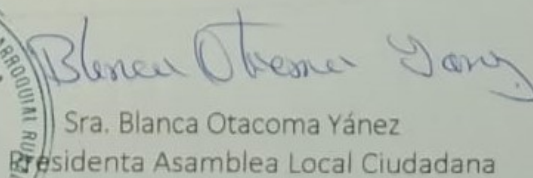 Blanca Otacoma Yánez
ARROQUIAL RU
Sra. Blanca Otacoma Yánez
Presidenta Asamblea Local Ciudadana